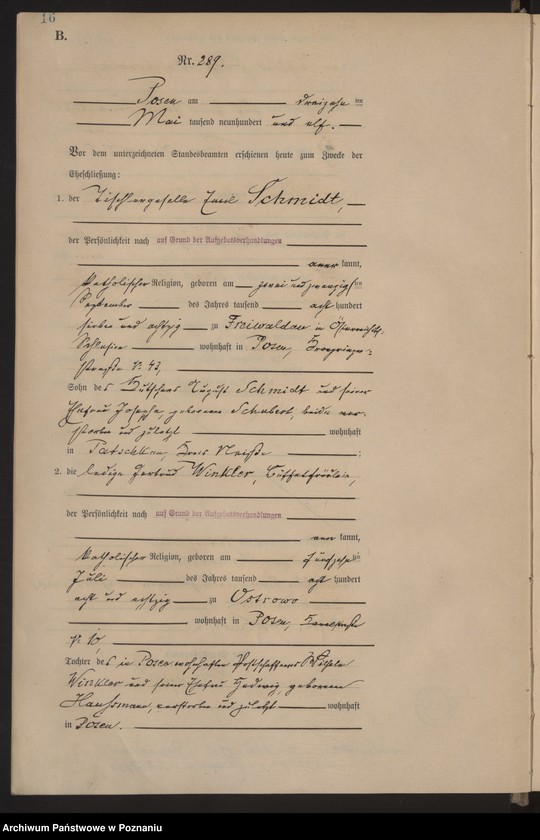 16
B.
Nr. 289.
Posen am dreizehn ten
Mai tausend neunhundert und elf.
Vor dem unterzeichneten Standesbeamten erschienen heute zum Zwecke der
Eheschließung:
1. der Tischlergeselle Emil Schmidt,
der Persönlichkeit nach auf Grund der Aufgebotsverhandlungen
aner kannt,
katholischer Religion, geboren am zwei und zwanzigsten
September des Jahres tausend acht hundert
sieben und achtzig zu Freiwaldau in Österreichisch-
Schlesien wohnhaft in Posen, Kronprinzen-
straße No 43,
Sohn des Kutschers August Schmidt und seiner
Ehefrau Josepha geborenen Schubert, beide ver-
storben und zuletzt wohnhaft
in Patschkau, Kreis Neiße ;
2. die ledige Gertrud Winkler, Büffetfräulein,
der Persönlichkeit nach auf Grund der Aufgebotsverhandlungen
aner kannt,
katholischer Religion, geboren am fünfzehnten
Juli des Jahres tausend acht hundert
acht und achtzig zu Ostrowo
wohnhaft in Posen,
No 10,
Tochter des in Posen wohnhaften Postschaffners Wilhelm
Winkler und seiner Ehefrau Hedwig, geborenen
verstorben und zuletzt wohnhaft
in Posen.
Archiwum Państwowe w Poznaniu